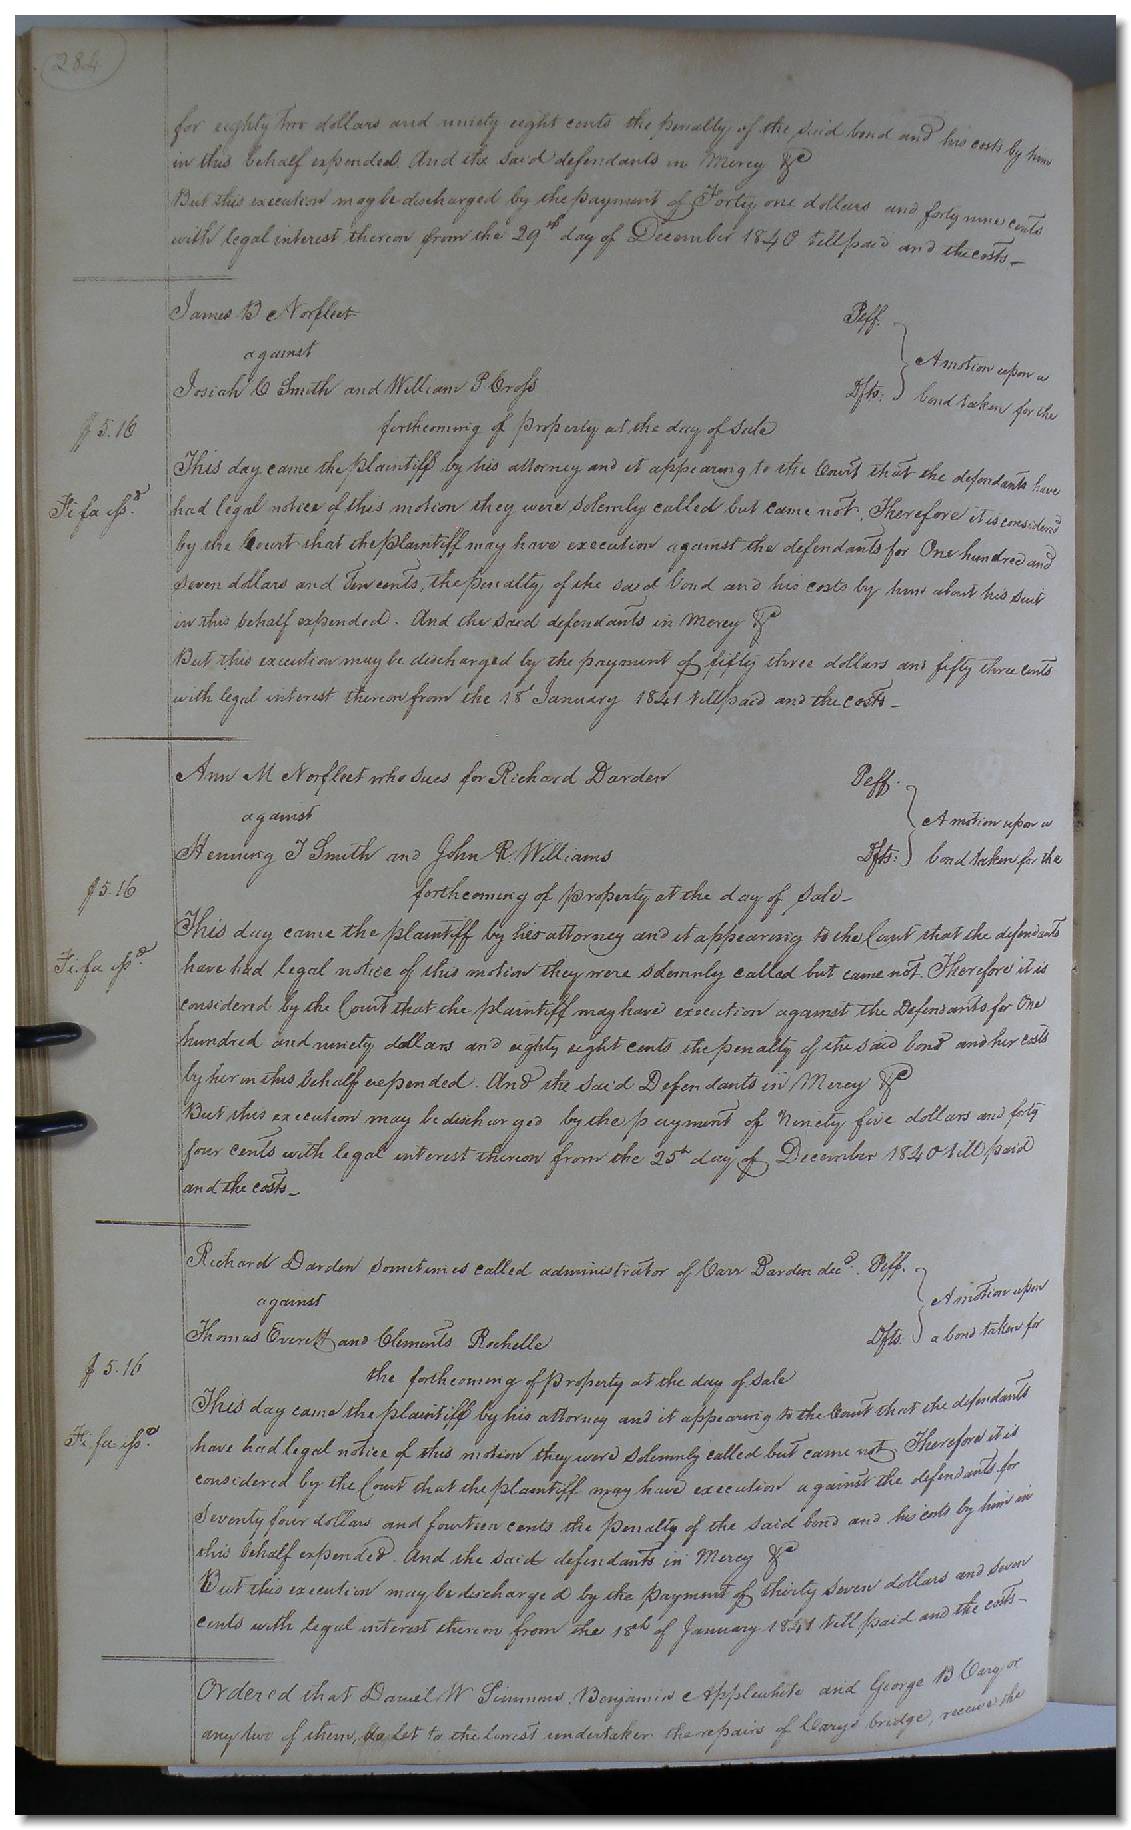 284
for eighty two dollars and ninety eight cents the penalty of the said bond and his costs by him
in this behalf expended. And the said defendants in Mercy &c
But this execution may be discharged by the payment of Forty one dollars and forty nine cents
with legal interest thereon from the 29th day of December 1840 till paid and the costs_
James B Norfleet Peff.
against A motion upon a
Josiah C Smith and William P Cross Dfts: bond taken for the
forthcoming of property at the day of sale
$5.16
This day came the plaintiff by his attorney and it appearing to the Court that the defendants have
Fi fa issd.
had legal notice of this motion they were solemnly called but came not. Therefore it is considered
by the Court that the plaintiff may have execution against the defendants for One hundred and
seven dollars and Ten cents, the penalty of the said bond and his costs by him about his suit
in this behalf expended. And the said defendants in Mercy &c
But this execution may be discharged by the payment of fifty three dollars and fifty three cents
with legal interest thereon from the 18 January 1841 till paid and the costs_
Ann M Norfleet who sues for Richard Darden Peff.
against A motion upon a
Henning T Smith and John R Williams Dfts: bond taken for the
forthcoming of property at the day of sale_
$5.16
This day came the plaintiff by her attorney and it appearing to the Court that the defendants
Fi.fa issd.
have had legal notice of this motion they were solemnly called but came not. Therefore it is
considered by the Court that the plaintiff may have execution against the Defendants for One
hundred and ninety dollars and eighty eight cents the penalty of the said bond and her costs
by her in this behalf expended. And the said Defendants in Mercy &c
But this execution may be discharged by the payment of Ninety five dollars and forty
four cents with legal interest thereon from the 25th day of December 1840 till paid
and the costs_
Richard Darden sometimes called administrator of Carr Darden decd. Peff.
against A motion upon
Thomas Everett and Clements Rochelle Dfts. a bond taken for
the forthcoming of property at the day of sale
$5.16
This day came the plaintiff by his attorney and it appearing to the Court that the defendants
Fi.fa issd.
have had legal notice of this motion they were solemnly called but came not. Therefore it is
considered by the Court that the plaintiff may have execution against the defendants for
Seventy four dollars and fourteen cents the penalty of the said bond and his costs by him in
this behalf expended. And the said defendants in Mercy &c
But this execution may be discharged by the payment of thirty seven dollars and seven
cents with legal interest thereon from the 18th of January 1841 till paid and the costs_
Ordered that Daniel W Simmons, Benjamin Applewhite and George B Cary or
any two of them, do let to the lowest undertaker the repairs of Carys bridge, receive the